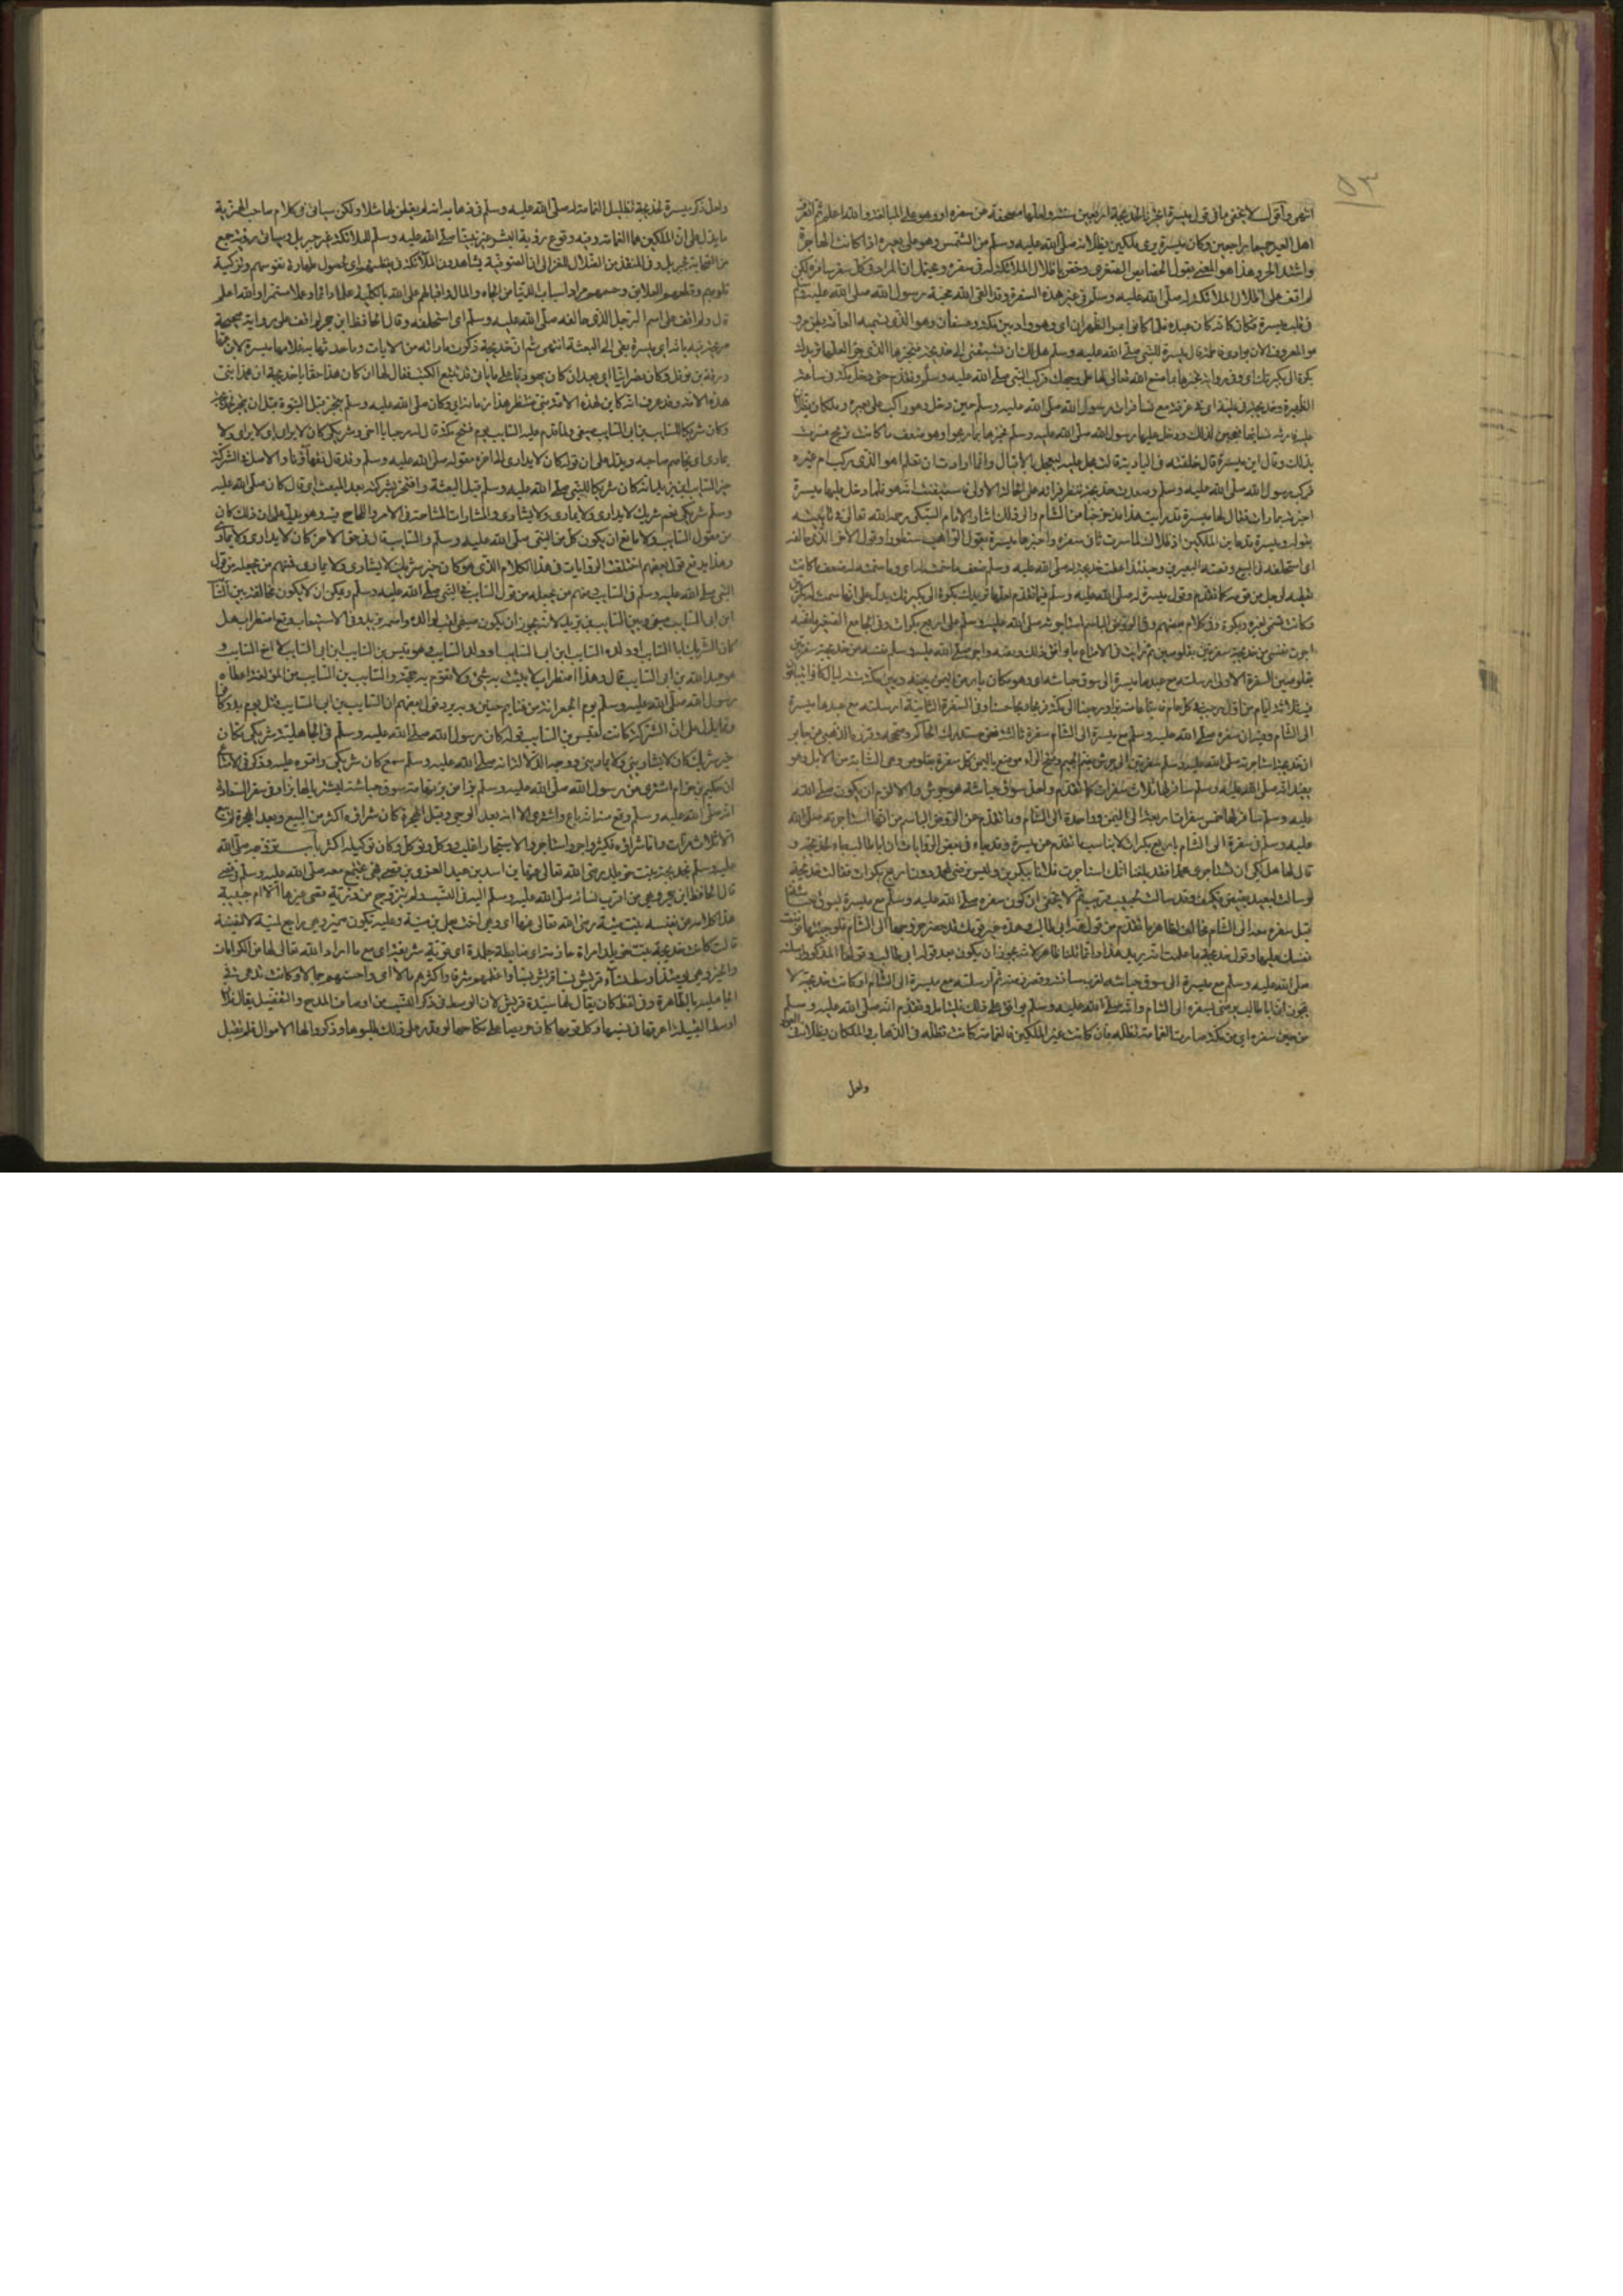 انتهى واقول لا يخفى ما في قول ميسرة اتجرنا لخديجة اربعين سفرة ولعلها مصحفة عن سفره او هو على المبالغة والله اعلم ثم انصرف
اهل العير جميعا راجعين وكان ميسرة يرى ملكين يظلانه صلى الله عليه وسلم من الشمس وهو على بعيره اذا كانت الهاجرة
واشتد الحر وهذا هو المعنى بقول الخصايص الصغرى وخص باظلال الملائكة له في سفره ويحتمل ان المراد في كل سفر سافره لكن
لم اقف على اظلال الملائكة له صلى الله عليه وسلم في غير هذه السفرة وقد القى الله محبة رسول الله صلى الله عليه وسلم
في قلب ميسرة فكان كانه عبده فلما كانوا بمر الظهران اي وهو واد بين مكة وعسفان وهو الذي تسميه العامة بطن مرو
هو المعروف الان بوادي فاطمة قال ميسرة للنبي صلى الله عليه وسلم هل لك ان تسبقني الى خديجة فتخبرها بالذي جرى لعلها تزيدك
بكرة الى بكرتيك اي وفي رواية تخبرها بما صنع الله تعالى لها على وجهك فركب النبي صلى الله عليه وسلم وتقدم حتى دخل مكة في ساعة
الظهيرة وخديجة في علية اي في غرفة مع نساء فرات رسول الله صلى الله عليه وسلم حين دخل وهو راكب على بعيره وملكان يظلان
عليه فارته نساءها فعجبن لذلك ودخل عليها رسول الله صلى الله عليه وسلم فخبرها بما ربحوا وهو ضعف ما كانت تربح فسرت
بذلك وقال اين ميسرة قال خلفته في البادية قالت عجل عليه ليعجل بالاقبال وانما ارادت ان تعلم اهو الذي رات ام غيره
فركب رسول الله صلى الله عليه وسلم وصعدت خديجة تنظر فراته على الحالة الاولى فاستيقنت انه هو فلما دخل عليها ميسرة
اخبرته بما رات فقال لها ميسرة قد رايت هذا منذ خرجنا من الشام والى ذلك اشار الامام السبكي رحمه الله تعالى في تائيته
بقوله وميسرة قد عاين الملكين اذ اظلاك لما سرت ثاني سفرة واخبرها ميسرة بقول الراهب نسطورا وقول الاخر الذي حالفه
اي استحلفه في البيع وقصة البعيرين وحينئذ اعطت خديجة له صلى الله عليه وسلم ضعف ما سمته له اي وما سمته له ضعف ما كانت
تعطيه لرجل من قومه كما تقدم وقول ميسرة له صلى الله عليه وسلم فيما تقدم لعلها تزيدك بكرة الى بكرتيك يدل على انها سمت له بكرتين
وكانت تسمي لغيره بكرة وفي كلام بعضهم وفي الروض الباسم استاجرته صلى الله عليه وسلم على اربع بكرات وفي الجامع الصغير بلفظ
اجرت نفسي من خديجة سفرتين بقلوصين ثم رايت في الامتاع ما يوافق ذلك ونصه واجر صلى الله عليه وسلم نفسه من خديجة سفرتين
بقلوصين السفرة الاولى ارسلته مع عبدها ميسرة الى سوق حباشة اي وهو مكان بارض اليمن بينه وبين مكة ست ليال كانوا يتبايعون
فيه ثلاثة ايام من اول رجب في كل عام فابتاعا منه بزا ورجعا الى مكة فربحا ربحا حسنا وفي السفرة الثانية ارسلته مع عبدها ميسرة
الى الشام وفيه ان سفره صلى الله عليه وسلم مع ميسرة الى الشام سفرة ثالثة ففي مستدرك الحاكر وصححه واقره الذهبي عن جابر
ان خديجة استاجرته صلى الله عليه وسلم سفرتين الى جرش بضم الجيم وفتح الراء موضع باليمن كل سفرة بقلوص وهي الشابة من الابل وهو
يفيد انه صلى الله عليه وسلم سافر لها ثلاث سفرات كما تقدم ولعل سوق حباشة هو جرش والا لازم ان يكون صلى الله
عليه وسلم سافر لها خمس سفرات اربعة الى اليمن وواحدة الى الشام وما تقدم عن الروض الباسم من انها استاجرته صلى الله
عليه وسلم في سفرة الى الشام باربع بكرات لا يناسب ما تقدم عن ميسرة وقد جاء في بعض الروايات ان ابا طالب جاء لخديجة و
قال لها هل لك ان تستاجري محمدا فقد بلغنا انك استاجرت فلانا ببكرين وليس نرضى لمحمد دون اربع بكرات فقالت خديجة
لو سالت لبعيد بغيض فكيف وقد سالت لحبيب قريب ثم لا يخفى ان كون سفره صلى الله عليه وسلم مع ميسرة لسوق حباشة
قبل سفره معه الى الشام مخالف لظاهر ما تقدم من قول عمه ابي طالب وهذه عير قومك قد حضر خروجها الى الشام فلو جئتها فعرضت
نفسك عليها وقول خديجة ما علمت انه يريد هذا وانما قلنا ظاهر لانه يجوز ان يكون بعد قول ابي طالب وقولها المذكور ارسلته
صلى الله عليه وسلم مع ميسرة الى سوق حباشة لقرب مسافته وقصر زمنه ثم ارسلته مع ميسرة الى الشام او كانت خديجة لا
تجوز ان ابا طالب يرضى بسفره الى الشام وانه صلى الله عليه وسلم يوافق على ذلك فليتامل وتقدم انه صلى الله عليه وسلم
من حين سفره اي من مكة صارت الغمامة تظله فان كانت غير الملكين فالغمامة كانت تظله في الذهاب والملكان يظلانه في العود
ولعل
ولعل ذكر ميسرة لخديجة تظليل الغمامة له صلى الله عليه وسلم في ذهابه انه لم يفطن لها مثلا ولكن سياتي في كلام صاحب الهمزية
ما يدل على ان الملكين هما الغمامة وفيه وقوع رؤية البشر غير نبينا صلى الله عليه وسلم للملائكة غير جبريل وسياتي رؤية جمع
من الصحابة لجبريل وفي المنقذ من الضلال للغزالي ان الصوفية يشاهدون الملائكة في يقظتهم اي لحصول طهارة نفوسهم وتزكية
قلوبهم وقطعهم العلايق وحسمهم مواد اسباب الدنيا من الجاه والمال واقبالهم على الله بالكلية علما دائما وعملا مستمرا والله اعلم
قال ولم اقف على اسم الرجل الذي حالفه صلى الله عليه وسلم اي استحلفه وقال الحافظ ابن حجر لم اقف على رواية صحيحة
صريحة فيه بانه اي ميسرة بقي الى البعثة انتهى ثم ان خديجة ذكرت ما راته من الايات وما حدثها به غلامها ميسرة لابن عمها
ورقة بن نوفل وكان نصرانيا اي بعد ان كان يهوديا على ما ياتي قد تتبع الكتب فقال لها ان كان هذا حقا يا خديجة ان محمدا نبي
هذه الامة وقد عرفت انه كاين لهذه الامة نبي منتظر هذا زمانه اي وكان صلى الله عليه وسلم يتجر قبل النبوة قبل ان يتجر لخديجة
وكان شريكا للسايب بن ابي السايب صيفي ولما قدم عليه السايب يوم فتح مكة قال له مرحبا باخي وشريكي كان لا يداري ولا
يماري اي يخاصم صاحبه ويدل على ان قوله كان لا يداري الى اخره مقوله صلى الله عليه وسلم وقد قال فقهاؤنا والاصل في الشركة
خبر السايب ابن يزيد انه كان شريكا للنبي صلى الله عليه وسلم قبل البعثة وافتخر بشركته بعد المبعث اي قال كان صلى الله عليه
وسلم شريكي نعم شريك لا يداري ولا يماري ولا يشاري والمشارات المشاحة في الامر واللجاج فيه وهو يدل على ان ذلك كان
من مقول السايب ولا مانع ان يكون كل من النبي صلى الله عليه وسلم والسايب قال في حق الاخر كان لا يداري ولا يماري
وهذا يدفع قول بعضهم اختلفت الروايات في هذا الكلام الذي هو كان خير شريك لا يشاري ولا يماري فمنهم من يجعله من قول
النبي صلى الله عليه وسلم في السايب ومنهم من يجعله من قول السايب في النبي صلى الله عليه وسلم ويمكن ان لا يكون مخالفة بين السايب
ابن ابي السايب صيفي وبين السايب ابن يزيد لانه يجوز ان يكون صيفي لقب لوالده واسمه يزيد وفي الاستيعاب وقع اضطراب هل
كان الشريك ابا السايب او ولده السايب ابن ابي السايب او ولد السايب وهو قيس بن السايب ابن ابي السايب لا اخ السايب و
هو عبد الله بن ابي السايب قال وهذا اضطراب لا يثبت به شيء ولا تقوم به حجة والسايب بن السايب من المؤلفة اعطاه
رسول الله صلى الله عليه وسلم يوم الجعرانة من غنايم حنين وبه يرد قول بعضهم ان السايب بن ابي السايب قتل يوم بدر كافرا
ومما يدل على ان الشركة كانت لقيس بن السايب قوله كان رسول الله صلى الله عليه وسلم في الجاهلية شريكي فكان
خير شريك كان لا يشاريني ولا يماريني ووجه الدلالة انه صلى الله عليه وسلم سمع كان شريكي واقره عليه وذكر في الامتاع
ان حكيم بن حزام اشترى من رسول الله صلى الله عليه وسلم بزا من بز تهامة بسوق حباشة
انه صلى الله عليه وسلم وقع منه انه باع واشترى الا انه بعد الوحي وقبل الهجرة كان شراؤه اكثر من البيع وبعد الهجرة لم يبع
الا ثلاث مرات واما شراؤه فكثير واجر واستاجر والاستيجار اغلب ووكل وتوكل وكان توكيله اكثر باب تزوجه صلى الله
عليه وسلم خديجة بنت خويلد رضي الله تعالى عنها ابن اسد بن عبد العزى بن قصي فهي تجتمع معه صلى الله عليه وسلم في قصي
قال الحافظ ابن حجر وهي من اقرب نسائه صلى الله عليه وسلم اليه في النسب ولم يتزوج من ذرية قصي غيرها الا ام حبيبة
هذا كلامه عن نفيسة بنت منية رضي الله تعالى عنها اي وهي اخت يعلى بن منية وعليه تكون ضميره هي راجع لمنية لا لنفيسة
قالت كانت خديجة بنت خويلد امراة حازمة اي ضابطة جلدة اي قوية شريفة اي مع ما اراد الله تعالى لها من الكرامات
والخير وهي يومئذ اوسط نساء قريش نسبا واعظمهم شرفا واكثرهم مالا اي واحسنهم جمالا وكانت تدعى في
الجاهلية بالطاهرة وفي لفظ كان يقال لها سيدة قريش لان الوسط في ذكر النسب من اوصاف المدح والتفضيل يقال فلان
اوسط القبيلة اعرقها في نسبها وكل قومها كان حريصا على نكاحها لو يقدر على ذلك قد طلبوها وذكروا لها الاموال فلم تقبل